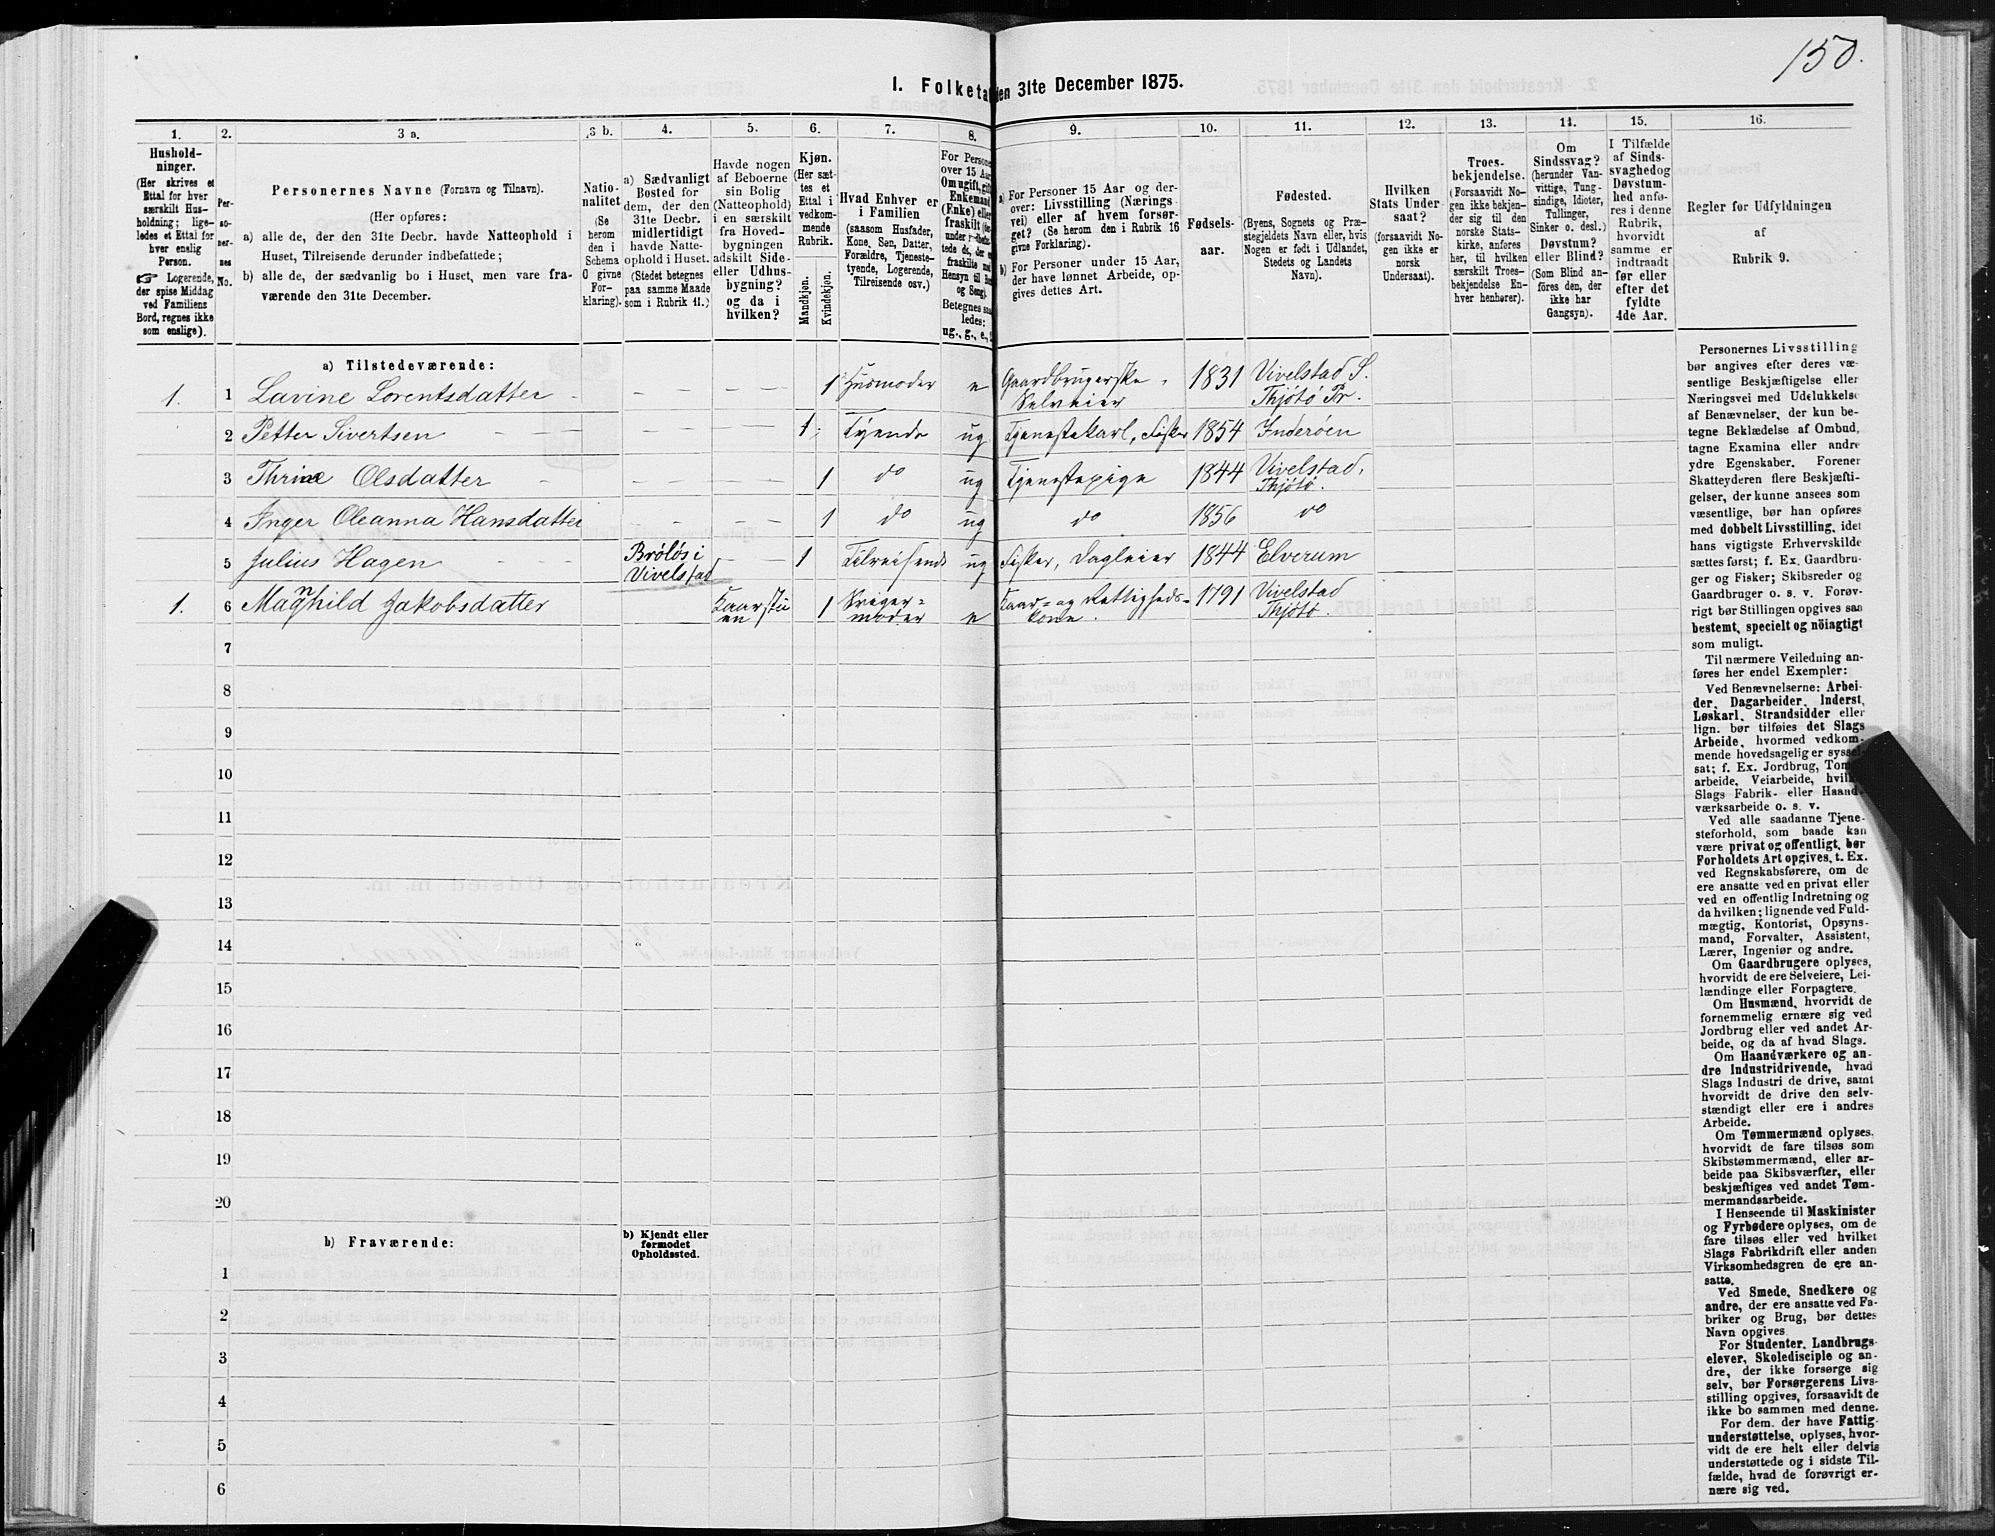 150.
1. Folketa den 31te December 1875.
1. 2. 3 a. 3 b. 4. 5. 6. 7. 8. 9. 10. 11. 12. 13. 14. 15. 16.
Hushold-
ninger.
(Her skrives et
Ettal for hver
særskilt Hus-
holdning; lige-
ledes et Ettal for
hver enslig
Person.
☞ Logerende,
der spise Middag
ved Familiens
Bord, regnes ikke
som enslige).
Per-
so-
ner-
nes
No.
Personernes Navne (Fornavn og Tilnavn).
(Her opføres:
a) alle de, der den 31te Decbr. havde Natteophold i
Huset, Tilreisende derunder indbefattede;
b) alle de, der sædvanlig bo i Huset, men vare fra-
værende den 31te December.
Natio-
nalitet
(Se
herom
den i
Schema
O givne
For-
klaring).
a) Sædvanligt
Bosted for
dem, der den
31te Decbr.
midlertidigt
havde Natte-
ophold i Huset.
(Stedet betegnes
paa samme Maade
som i Rubrik 11.)
Havde nogen
af Beboerne
sin Bolig
(Natteophold)
i en særskilt
fra Hoved-
bygningen
adskilt Side-
eller Udhus-
bygning?
og da i
hvilken?
Kjøn.
(Her sæt-
tes et
Ettal i
vedkom-
mende
Rubrik.
Mandkjøn.
Kvindekjøn.
Hvad Enhver er
i Familien
(saasom Husfader,
Kone, Søn, Datter,
Forældre, Tjeneste-
tyende, Logerende,
Tilreisende osv.)
For Persone
over 15 Aar
Om ugift, gift
Enkemand
(Enke) eller
fraskilt
Hensyn til
og Seng).
Betegnes saa
ledes:
ug., g., e.,
a) For Personer 15 Aar og der-
over: Livsstilling (Nærings
vei) eller af hvem forsør-
get? (Se herom den i Rubrik 16
givne Forklaring).
b) For Personer under 15 Aar,
der have lønnet Arbeide, op-
gives dettes Art.
Fødsels-
aar.
Fødested.
(Byens, Sognets og Præ-
stegjeldets Navn eller, hvis
Nogen er født i Udlandet,
Stedets og Landets
Navn).
Hvilken
Stats Under
saat?
(forsaavidt No-
gen ikke er
norsk
Undersaat).
Troes-
bekjendelse.
(Forsaavidt No-
gen ikke bekjen-
der sig til den
norske Stats-
kirke, anføres
her, til hvilken
særskilt Troes-
bekjendelse En-
hver henhører).
Om
Sindssvag?
(herunder Van-
vittige, Tung-
sindige, Idioter,
Tullinger,
Sinker o. desl.)
Døvstum?
eller Blind?
(Som Blind an-
føres den, der
ikke har
Gangsyn).
I Tilfælde
af Sinds-
svaghed og
Døvstum-
hed anfø-
res i denne
Rubrik,
hvorvidt
samme er
indtraadt
før eller
efter det
fyldte
4de Aar.
Regler for Udfyldningen
af
Rubrik 9.
a) Tilstedeværende:
1. 1 Lavine Lorentsdatter 1 Husmoder e Gaardbrugerske. Selveier 1831 Vivelstad S. Thjøtø Pr.
2 Petter Sivertsen 1 Tyende ug Tjenestekarl, Fisker 1854 Inderøen
3 Thrine Olsdatter 1 do ug Tjenestepige 1844 Vivelstad, Thjøtø.
4 Inger Oleanna Hansdatter 1 do ug do 1856 do
5 Julius Hagen Brøløs i Vivelstad 1 Tilreisende ug Fisker, Dagleier 1844 Elverum
1. 6 Magnhild Jakobsdatter Kaarstuen 1 Sviger= moder e Kaar= og Rettigheds= kone. 1791 Vivelstad Thjøtø.
7
8
9
10
11
12
13
14
15
16
17
18
19
20
b) Fraværende:
b) Kjendt eller
formodet
Opholdssted.
1
2
3
4
5
6
Personernes Livsstilling
bør angives efter deres væ-
sentlige Beskjæftigelse eller
Næringsvei med Udelukkelse
af Benævnelser, der kun be-
tegne Beklædelse af Ombud,
tagne Examina eller andre
ydre Egenskaber. Forener
Skatteyderen flere Beskjæfti-
gelser, der kunne ansees som
væsentlige, bør han opføres
med dobbelt Livsstilling, idet
hans vigtigste Erhvervskilde
sættes først; f. Ex. Gaardbru-
ger og Fisker; Skibsreder og
Gaardbruger o. s. v. Forøv-
rigt bør Stillingen opgives saa
bestemt, specielt og nøiagtigt
som muligt.
Til nærmere Veiledning an-
føres her endel Exempler:
Ved Benævnelserne: Arbei-
der, Dagarbeider, Inderst,
Løskarl, Strandsidder eller
lign. bør tilføies det Slags
Arbeide, hvormed vedkom-
mende hovedsagelig er syssel-
sat; f. Ex. Jordbrug, Tom
arbeide, Veiarbeide, hvil
Slags Fabrik- eller Haand-
værksarbeide o. s. v.
Ved alle saadanne Tjene-
steforhold, som baade kan
være privat og offentligt, bør
Forholdets Art opgives, t. Ex.
ved Regnskabsførere, om de
ere ansatte ved en privat eller
ved en offentlig Indretning og
da hvilken; lignende ved Fuld-
mægtig, Kontorist, Opsyns-
mand, Forvalter, Assistent,
Lærer, Ingeniør og andre.
Om Gaardbrugere oplyses,
hvorvidt de ere Selveiere, Lei-
lændinge eller Forpagtere.
Om Husmænd, hvorvidt de
fornemmelig ernære sig ved
Jordbrug eller ved andet Ar-
beide, og da af hvad Slags.
Om Haandværkere og an-
dre Industridrivende, hvad
Slags Industri de drive, samt
hvorvidt de drive den selv-
stændigt eller ere i andres
Arbeide.
Om Tømmermænd oplyses,
hvorvidt de fare tilsøs som
Skibstømmermænd, eller ar-
beide paa Skibsværfter, eller
beskjæftiges ved andet Tøm-
mermandsarbeide.
I Henseende til Maskinister
og Fyrbødere oplyses, om de
fare tilsøs eller ved hvilket
Slags Fabrikdrift eller anden
Virksomhedsgren de ere an-
satte.
Ved Smede, Snedkere og
andre, der ere ansatte ved Fa-
briker og Brug, bør dettes
Navn opgives
For Studenter, Landbrugs-
elever, Skoledisciple og an-
dre, der ikke forsørge sig
selv, bør Forsørgerens Livs-
stilling opgives, forsaavidt de
ikke bo sammen med denne.
For dem, der have Fattig-
understøttelse, oplyses, hvor-
vidt de ere helt eller delvis
understøttede og i sidste Til-
fælde, hvad de forøvrigt er-
nære sig ved.